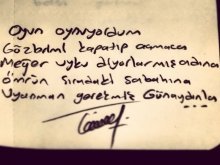 Oyun oynuyordum
Gözlerimi kapatıp açmaca
Meğer uyku diyorlarmış adına
Ömrün şimdiki sabahına
Uyanman gerekmiş Günaydınlar